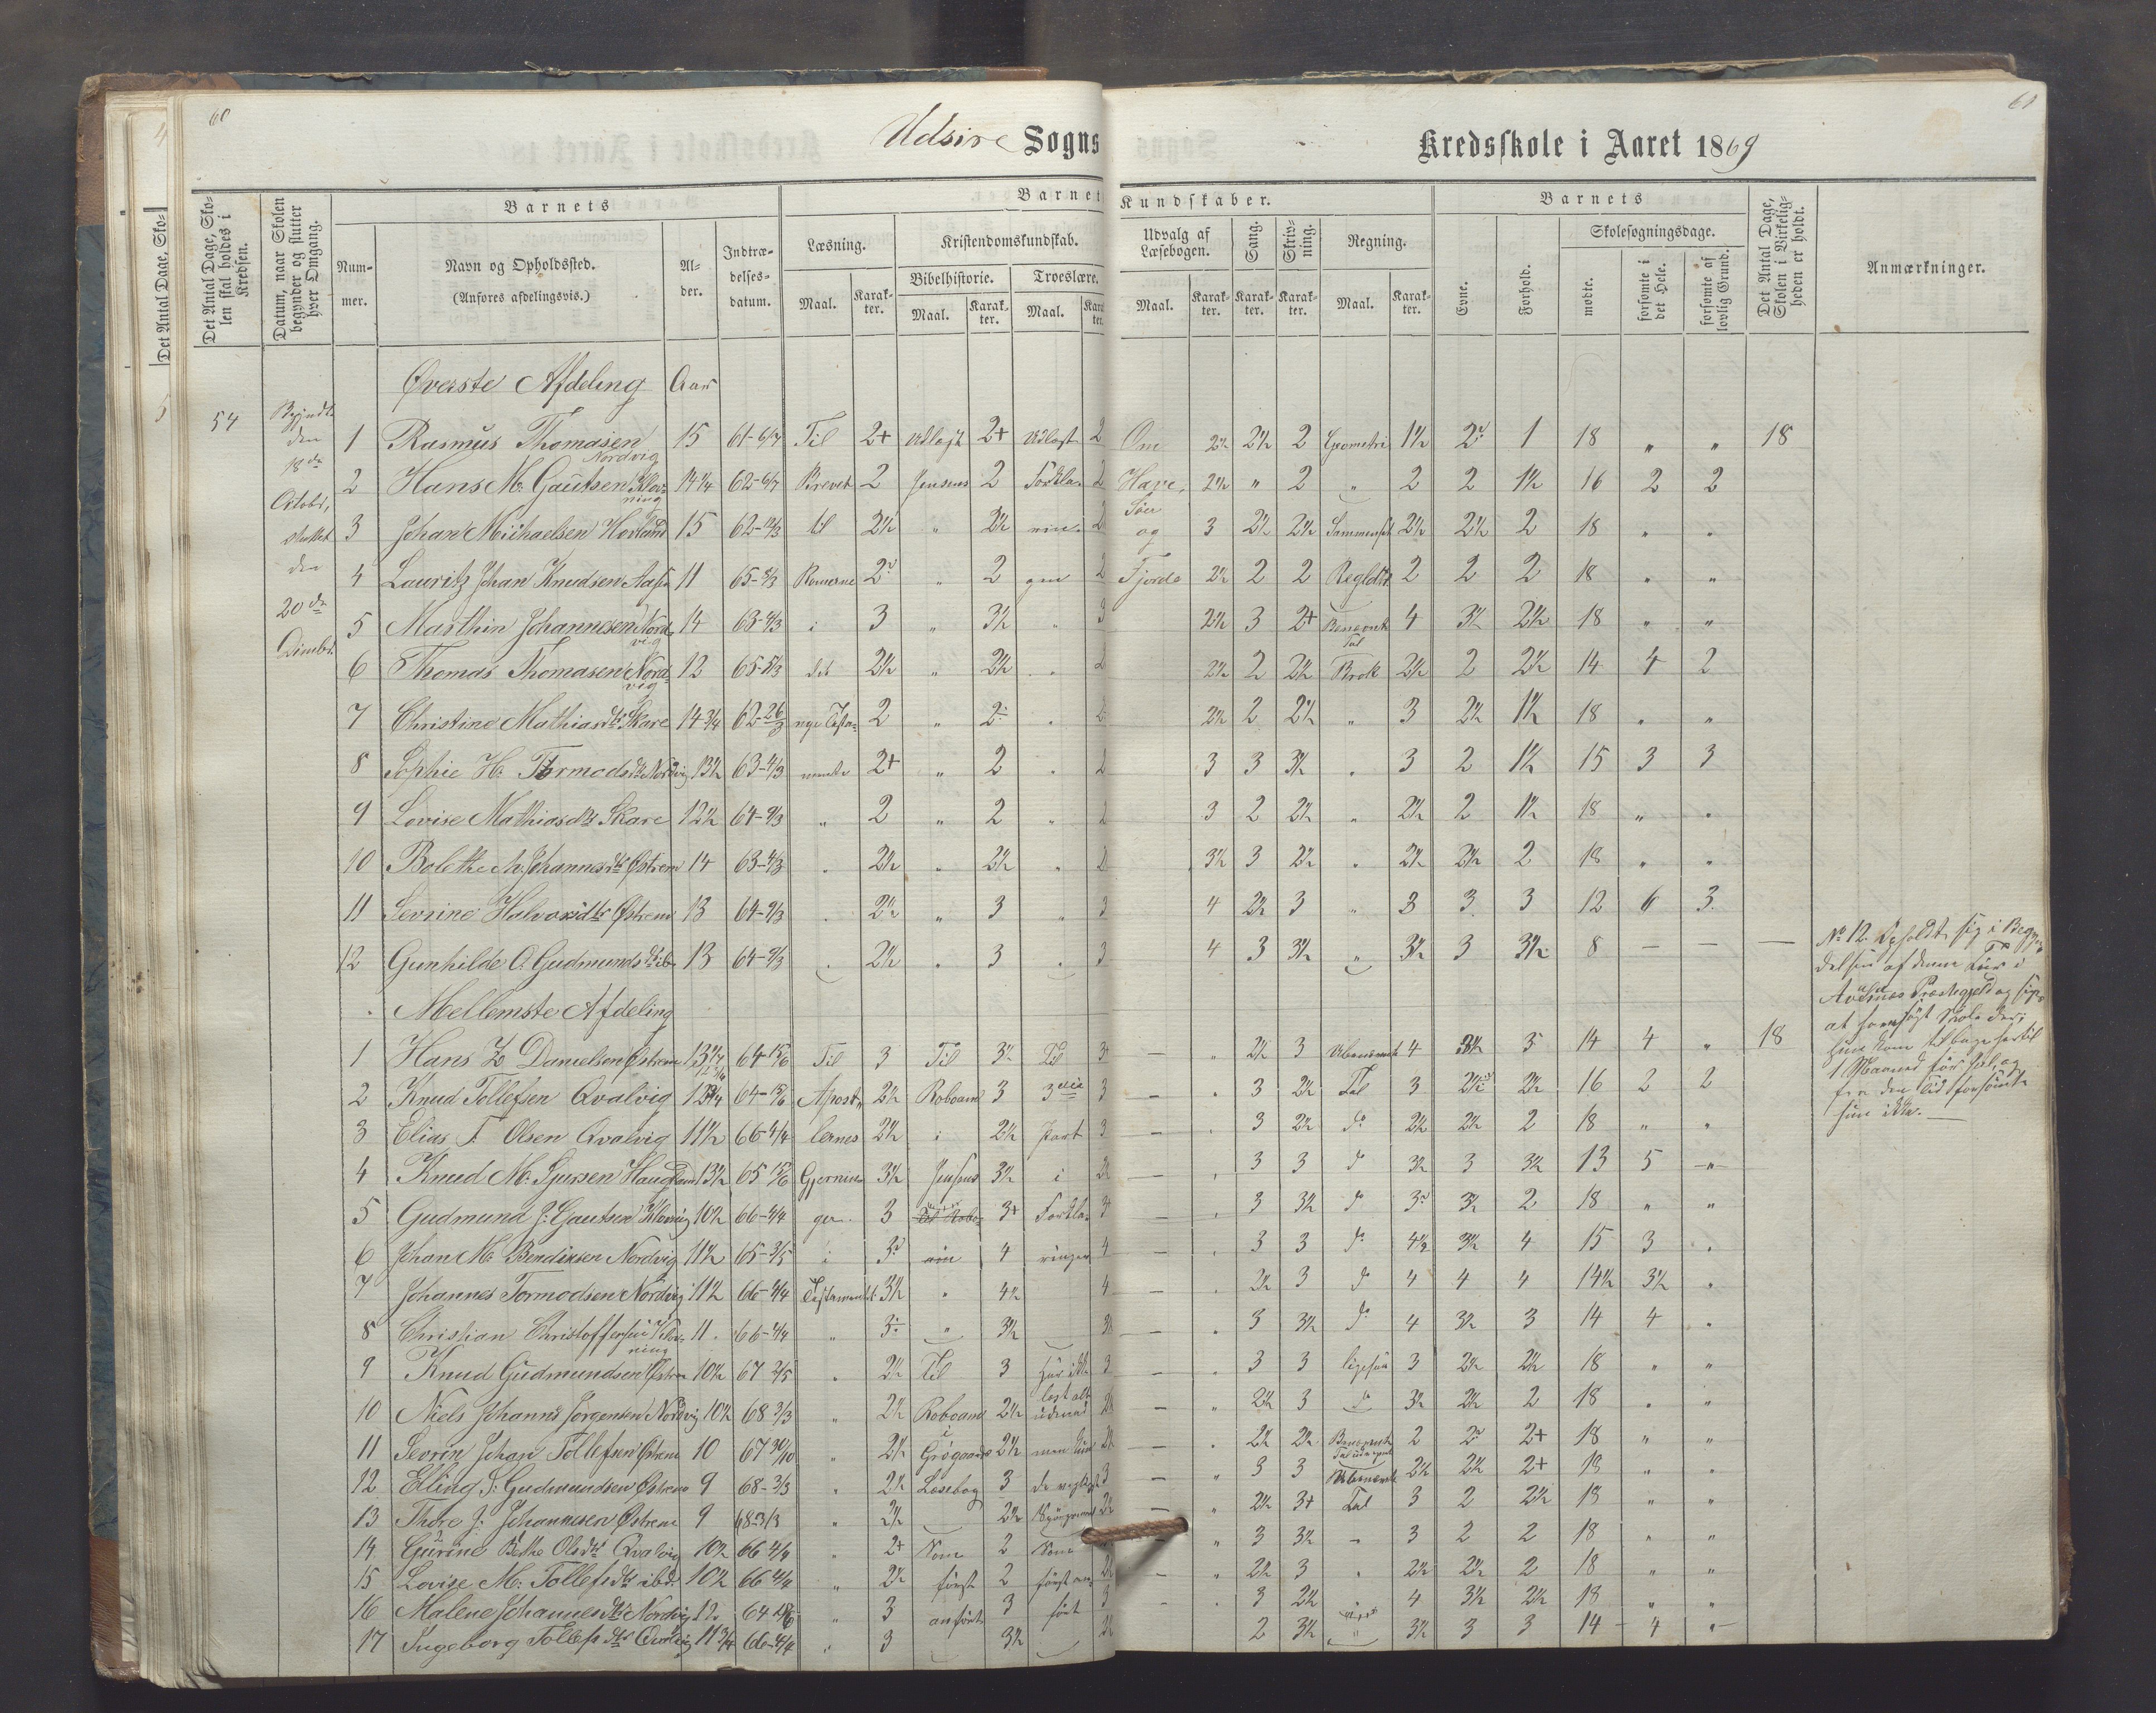 60
61
Udsire Sogns Kredsskole i Aaret 1869
Det Antal Dage, Sko-
Det Antal Dage, Skolen skal holdes i Kredsen.
Datum, naar Skolen begynder og slutter hver Omgang.
Barnets
Barnets Kundskaber.
Barnets
Det Antal Dage, Skolen i Virkeligheden er holdt.
Anmærkninger.
Nummer.
Navn og Opholdssted.
(Anføres afdelingsvis.)
Alder.
Indtrædelsesdatum.
Læsning.
Kristendomskundskab.
Udvalg af Læsebogen.
Sang.
Skrivning.
Regning.
Evne.
Forhold.
Skolesøgningsdage.
Bibelhistorie.
Troeslære.
mødte.
forsømte i det Hele.
forsømte af lovlig Grund.
Maal. Karakter. Maal. Karakter. Maal. Karakter. Maal. Karakter. Karakter. Karakter. Maal. Karakter.
Øverste Afdeling Aar
54 Begyndt den 18de Octobr, sluttet den 20de Decembr.
1 Rasmus Thomasen Nordvig 15 61-6/7 Til 2+ udlagt 2+ udlagt 2 Om 2½ 2½ 2 Geometri 1½ 2 1 18 „ „ 18
2 Hans M. Gautsen Kløvning 14¼ 62-6/7 Brevet 2 Jensens 2 Forkla- 2 Have, 2½ „ 2 „ 2 2 1½ 16 2 2
3 Johan Michaelsen Hovland 15 62-12/3 til 2½ „ 2½ rin- 2 Søer og 3 2½ 2½ Sammensat 2½ 2½ 2 18 „ „
4 Lauritz Johan Knudsen Aasen 11 65-5/3 Romerne 2 „ 2 gen 2 Fjorde 2½ 2 2 Regldtr 2 2 2 18 „ „
5 Marthin Johannesen Nordvig 14 63-4/3 i 3 „ 3½ „ 3 2½ 3 2+ Benævnte Tal 4 3½ 2½ 18 „ „
6 Thomas Thomasen Nordvig 12 65-5/3 det 2½ „ 2½ „ 2 2½ 2 2½ Brøk 2½ 2 2½ 14 4 2
7 Christine Mathiasdtr Skare 14¾ 62-26/3 nye Testa- 2 „ 2 „ 2 2½ 2 2½ „ 3 2½ 1½ 18 „ „
8 Sophie H. Tormodsdtr Nordvig 13½ 63-4/3 mente 2+ „ 2 „ 2 3 3 3½ „ 3 2 1½ 15 3 3
9 Lovise Mathiasdtr Skare 12½ 64-9/3 „ 2 „ 2 „ 2 3 2 2½ „ 2½ 2 1½ 18 „ „
10 Bolethe M. Johannesdtr Østrem 14 63-4/3 „ 2½ „ 2½ „ 2 3½ 3 2½ „ 2½ 2½ 2 18 „ „
11 Sevrine Halvorsdtr Østrem 13 64-9/3 „ 2½ „ 3 „ 3 4 2½ 3 „ 3 3 3 12 6 3
12 Gunhilde O. Gudmundsdtr ib. 13 64-9/3 „ 2½ „ 3 „ 3 4 3 3½ „ 3½ 3 3½ 8 — — —
No 12. Opholdt sig i Begyn-
delsen af denne Tur i
Avaldsnes Præstegjeld og siges
at have søgt Skole der;
hun kom tilbage hertil
1 Maaned før Jul, og
fra den Tid forsømte
hun ikke. —
Mellemste Afdeling
1 Hans Z Danielsen Østrem 13 64-15/6 Til 3 Til 3½ Til 3 — „ 2½ 3 Ubenævnte 4 3½ 3 14 4 „ 18
2 Knud Tollefsen Qvalvig 12¾ 64-15/6 Apost- 2½ Roboam 3 3die 3 — „ 3 2½ Tal 3 2½ 2½ 16 2 2
3 Elias T. Olsen Qvalvig 11½ 66-4/4 lernes 2½ i 2½ Part 3 — „ 3 2½ do 2½ 2½ 2 18 „ „
4 Knud M. Sjursen Hauglam 13½ 65 15/6 Gjernin- 3½ Jensens 3½ i 2½ — „ 3 3 do 3½ 3 3½ 13 5 „
5 Gudmund J. Gautsen Kløvning 10½ 66-4/4 ger 3 3+ Forkla- 3 — „ 3 3½ do 3 3½ 2 18 „ „
6 Johan M. Bendiksen Nordvig 11½ 65-3/5 i 3 4 ringen 4 — „ 3 3 do 4½ 3½ 4 15 3 „
7 Johannes Tormodsen Nordvig 11½ 66-4/4 Testamentet 3½ „ 4½ 4 — „ 2½ 3 do 4 4 4 14½ 3½ „
8 Christian Christoffersen Kløvning 11 66-4/4 „ 3 „ 3½ 3½ — „ 3 3½ do 4 3½ 3 14 4 „
9 Knud Gudmundsen Østrem 10½ 67 2/5 „ 2½ Til 3 Har ikke 3 — „ 3 3 ligesaa 3 2½ 2½ 18 „ „
10 Niels Johans Jørgensen Nordvig 10½ 68 3/3 „ 2½ Roboam 2½ læst alt udenad 2½ — „ 2½ 3 do 3½ 2½ 2 18 „ „
11 Sevrin Johan Tollefsen Østrem 10 67 30/10 „ 2½ i Grøgaards 2½ men kun 2½ — „ 2½ 2½ Benævnte Tal 2 2 2+ 18 „ „
12 Elling S. Gudmundsen Østrem 9 68-3/3 „ 2½ Læsebog 3 de vigtigste 3 — „ 3 3 Ubenævnte 2½ 2½ 2+ 18 „ „
13 Thore J. Johannesen Østrem 9 68 3/3 „ 2½ 2½ Spørgsmaal 2½ — „ 2½ 3+ Tal 3 2 2½ 18 „ „
14 Gurine Bethe Olsdtr Qvalvig 10½ 66 4/4 „ 2+ Som 2 Som — „ 3 3½ „ 3 2 2 18 „ „
15 Lovise M. Tollefsdtr ibd. 10½ 66 4/4 „ 2½ først 2 først an- 2½ — „ 2½ 3 „ 2½ 2½ 2 18 „ „
16 Malene Johannesdtr Nordvig 12 64 15/6 „ 3 anført 3 ført 3 — „ 3 2½ „ 4 3½ 2½ 18 „ „
17 Ingeborg Tollefsdtr Qvalvig 11¾ 66-4/4 „ 3 3½ 2½ 2 3½ „ 3½ 3 3 14 4 „